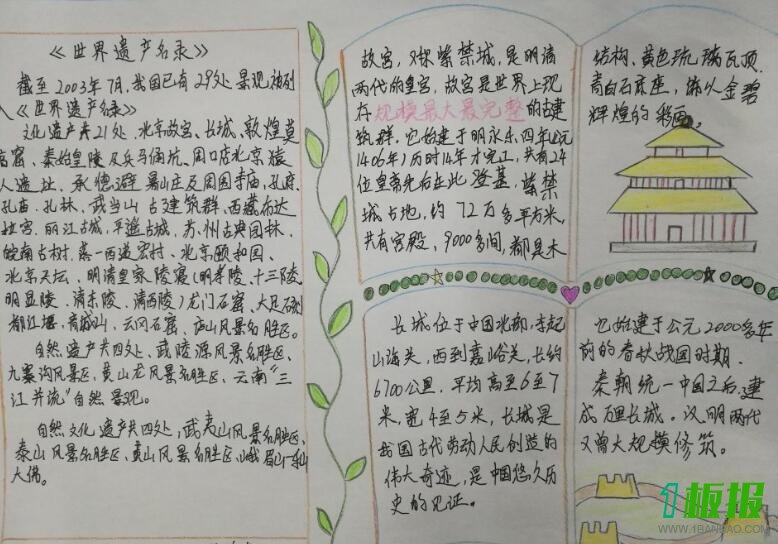 《世界遗产名录》
截至2003年7月,我国已有29处景观被列
入《世界遗产名录》
文化遗产共21处:北京故宫、长城、敦煌莫
高窟、秦始皇陵及兵马俑坑、周口店北京猿
人遗址、承德避暑山庄及周围寺庙,孔府、
孔庙、孔林、武当山古建筑群、西藏布达
拉宫、丽江古城,平遥古城、苏州古典园林、
皖南古村、西递宏村、北京颐和园、
北京天坛、明清皇家陵寝(明孝陵、十三陵、
明显陵、清东陵、清西陵)龙门石窟、大足石刻
都江堰、青城山、云冈石窟、庐山风景名胜区。
自然遗产共四处、武陵源风景名胜区、
九寨沟风景区、黄山龙风景名胜区、云南"三
江并流"自然景观。
自然文化遗产共四处,武夷山风景名胜区、
泰山风景名胜区、黄山风景名胜区、峨眉山—乐山
大佛。
故宫,又称紫禁城,是明清
两代的皇宫,故宫是世界上现
存规模最大最完整的古建
筑群。它始建于明永乐四年(公元
1406年)历时14年才完工,共有24
位皇帝先后在此登基,紫禁
城占地,约72万多平方米,
共有宫殿,9000多间,都是木
结构、黄色琉璃瓦顶、
青白石底座,饰以金碧
辉煌的彩画。
长城位于中国北部,东起
山海关,西到嘉峪关,长约
6700公里.平均高至6至7
米,宽4至5米,长城是
我国古代劳动人民创造的
伟大奇迹,是中国悠久历
史的见证。
它始建于公元2000多年
前的春秋战国时期.
秦朝统一中国之后,建
成万里长城。汉.明两代
又曾大规模修筑。
1板报
WWW.1BANBAO.COM